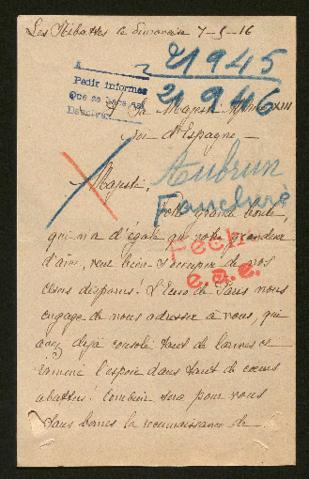 Les Ribottes le dimanche 7-5-16
A
21945
Pedir informes
Que se hara al
Desolver
21946
A Sa Majesté Alphonse XIII
Roi d'Espagne
Aubrun
Majesté,
Faucheré
Votre grande bonté,
qui n'a d'égale que votre grandeur
d'âme, veut bien s'occuper de nos
Fech
e.a.e.
chers disparus! L'Écho de Paris nous
engage de nous adresser à vous, qui
avez déjà consolé tant de larmes et
ramené l'espoir dans tant de cœurs
abattus! Combien sera pour vous
sans bornes la reconnaissance de